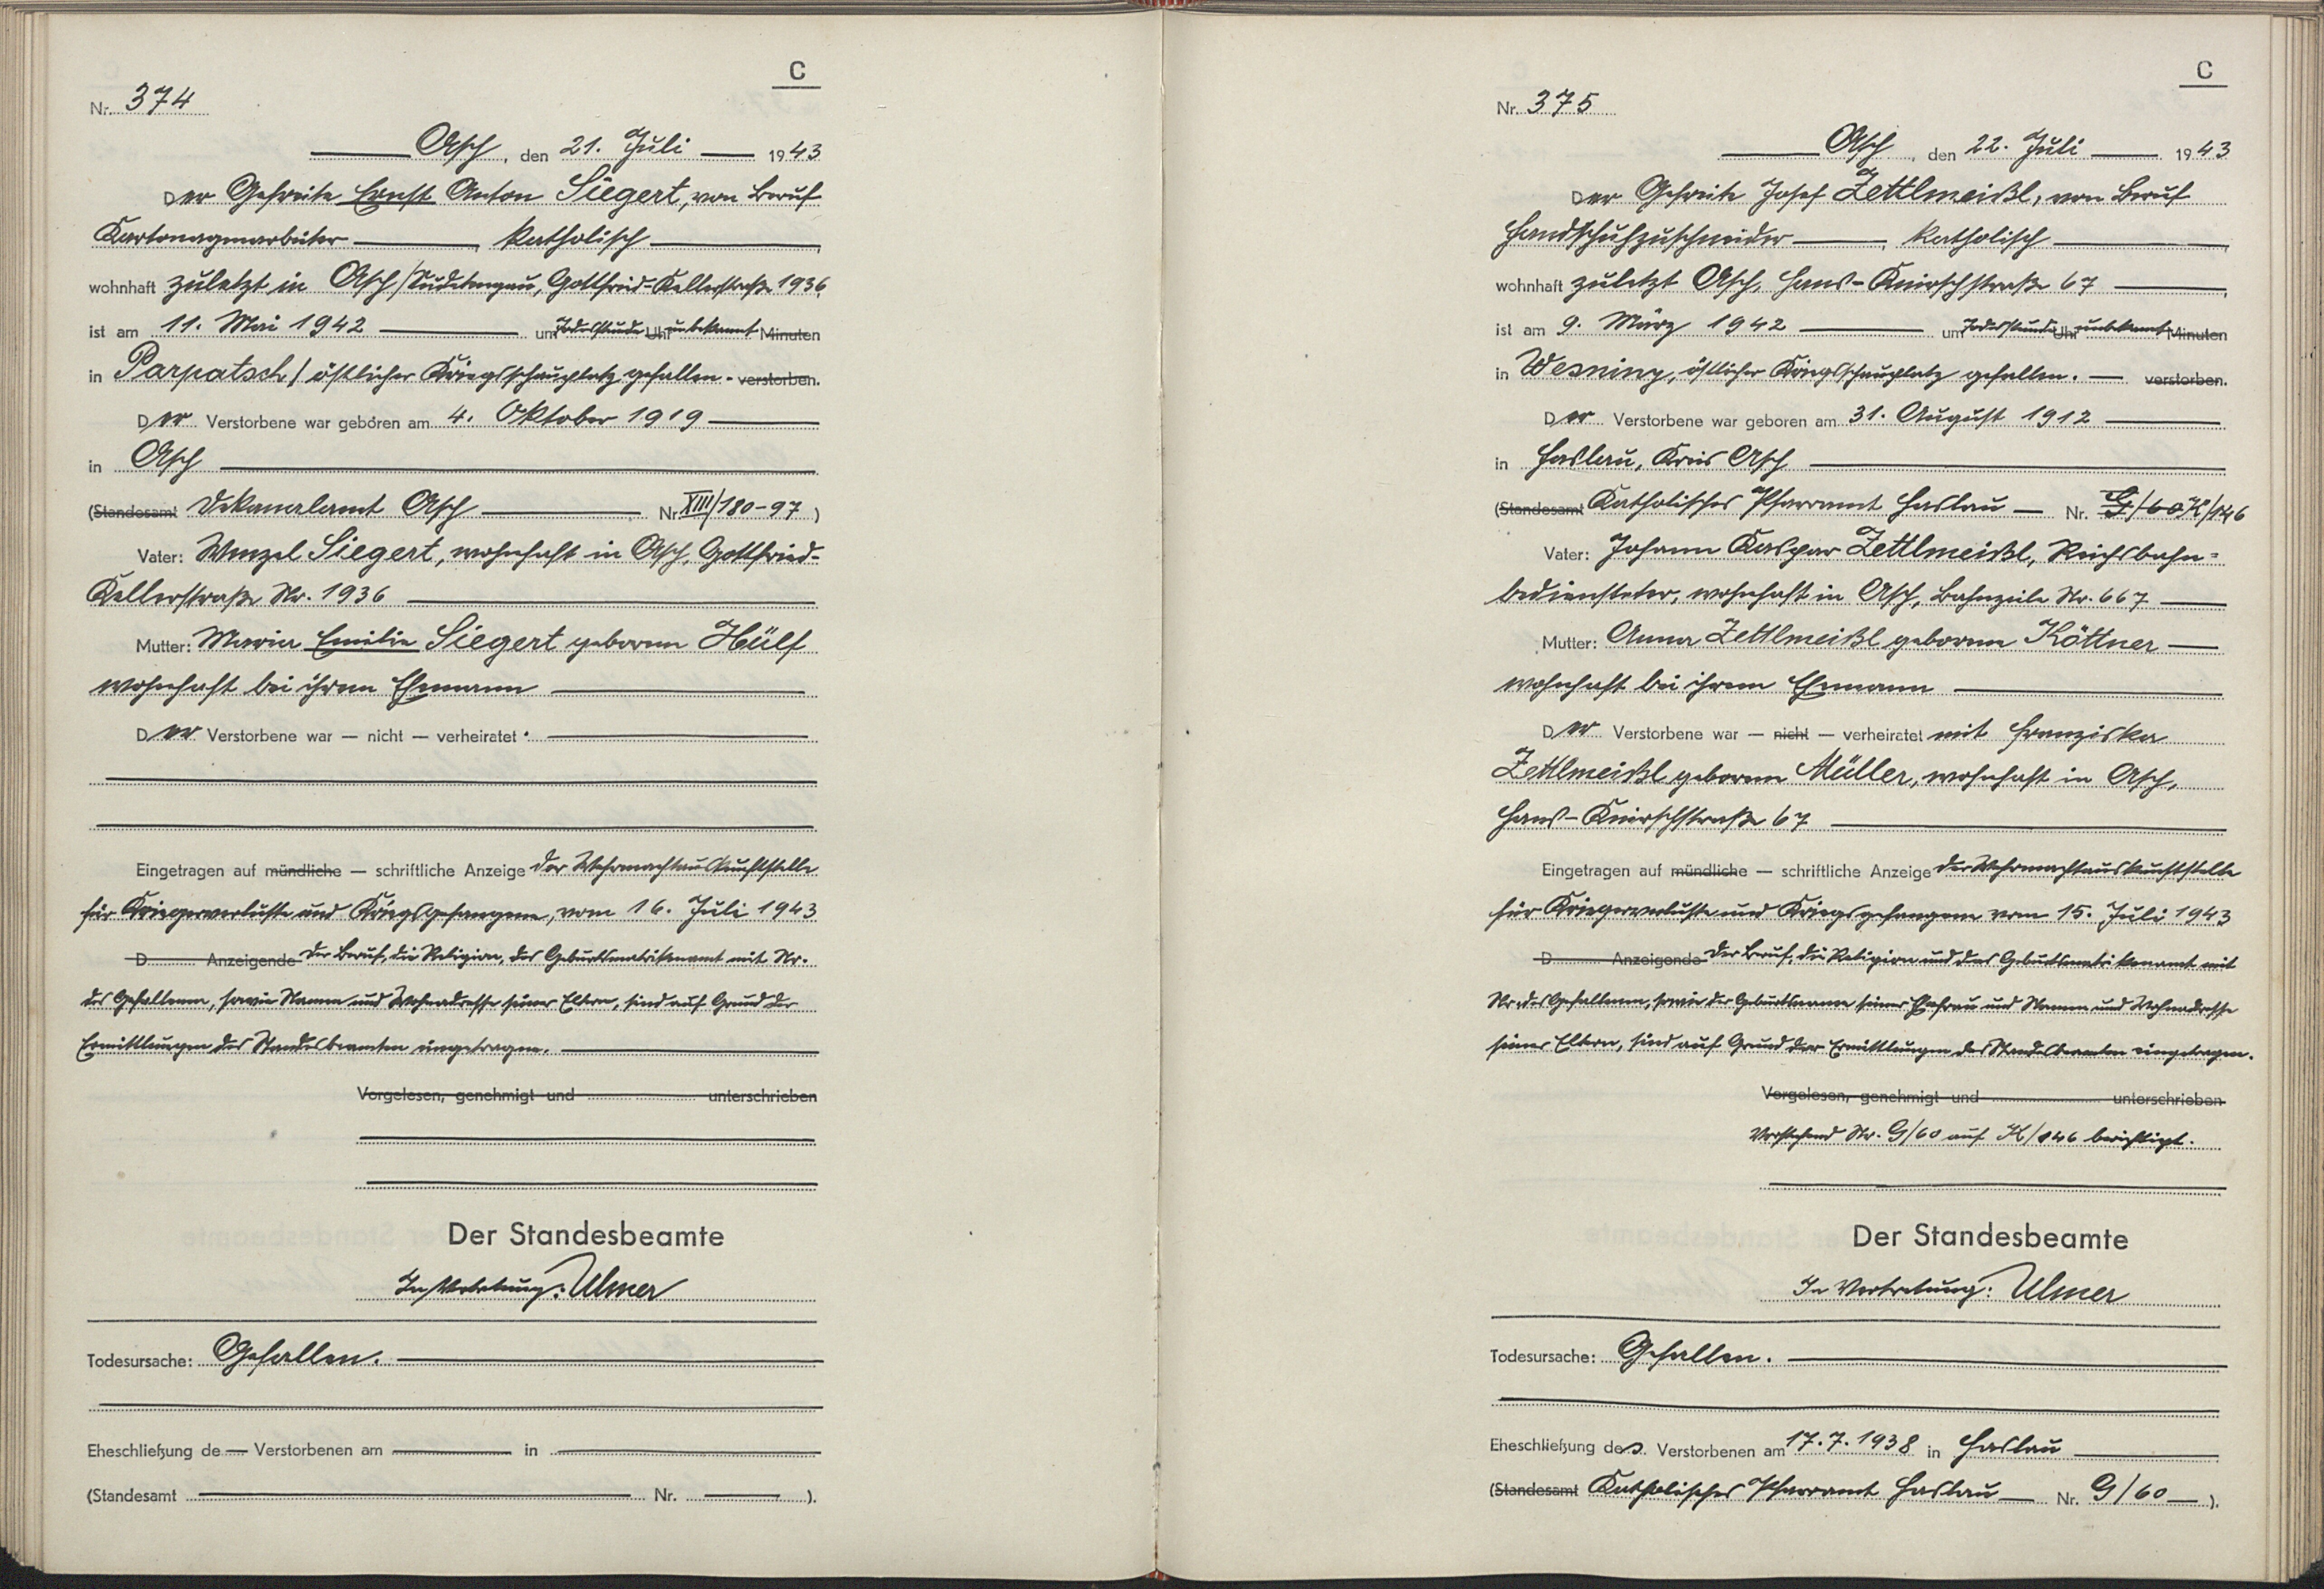 C
Nr. 374
Asch, den 21. Juli 1943
Der Gefreite Ernst Anton Siegert, von Beruf
Kartonagenarbeiter, katholisch
wohnhaft zuletzt in Asch/Sudetengau, Gottfried-Kellerstraße 1936,
ist am 11. Mai 1942 um Todesstunde Uhr unbekannt Minuten
in Parpatsch/östlicher Kriegsschauplatz gefallen. verstorben.
Der Verstorbene war geboren am 4. Oktober 1919
in Asch
(Standesamt Dekanalamt Asch Nr. XIII/180-97)
Vater: Wenzel Siegert, wohnhaft in Asch, Gottfried-
Kellerstraße Nr. 1936
Mutter: Maria Emilie Siegert geborene Hülf
wohnhaft bei ihrem Ehemann
Der Verstorbene war — nicht — verheiratet.
Eingetragen auf mündliche — schriftliche Anzeige der Wehrmachtauskunftstelle
für Kriegerverluste und Kriegsgefangene, vom 16. Juli 1943
D Anzeigende Der Beruf, die Religion, das Geburtsmatrikenamt mit Nr.
des Gefallenen, sowie Namen und Wohnadresse seiner Eltern, sind auf Grund der
Ermittlungen des Standesbeamten eingetragen.
Vorgelesen, genehmigt und unterschrieben
Der Standesbeamte
In Vertretung: Ulmer
Todesursache: Gefallen.
Eheschließung de Verstorbenen am in
(Standesamt Nr. ).
C
Nr. 375
Asch, den 22. Juli 1943
Der Gefreite Josef Zettlmeißl, von Beruf
Handschuhzuschneider, katholisch
wohnhaft zuletzt Asch, Hans-Knirschstraße 67,
ist am 9. März 1942 um Todesstunde Uhr unbekannt Minuten
in Wesniny, östlicher Kriegsschauplatz gefallen. verstorben.
Der Verstorbene war geboren am 31. August 1912
in Haslau, Kreis Asch
(Standesamt Katholisches Pfarramt Haslau Nr. G/60 K/146
Vater: Johann Kaspar Zettlmeißl, Reichsbahn-
bediensteter, wohnhaft in Asch, Bahnzeile Nr. 667
Mutter: Anna Zettlmeißl geborene Köttner
wohnhaft bei ihrem Ehemann
Der Verstorbene war — nicht — verheiratet mit Franziska
Zettlmeißl geborene Müller, wohnhaft in Asch,
Hans-Knirschstraße 67
Eingetragen auf mündliche — schriftliche Anzeige der Wehrmachtauskunftstelle
für Kriegerverluste und Kriegsgefangene vom 15. Juli 1943
D Anzeigende Der Beruf, die Religion und das Geburtsmatrikenamt mit
Nr. des Gefallenen, sowie der Geburtsname seiner Ehefrau und Namen und Wohnadresse
seiner Eltern, sind auf Grund der Ermittlungen des Standesbeamten eingetragen.
Vorgelesen, genehmigt und unterschrieben
Vorstehend Nr. G/60 auf K/146 berichtigt.
Der Standesbeamte
In Vertretung: Ulmer
Todesursache: Gefallen.
Eheschließung des Verstorbenen am 17.7.1938 in Haslau
(Standesamt Katholisches Pfarramt Haslau Nr. G/60 ).